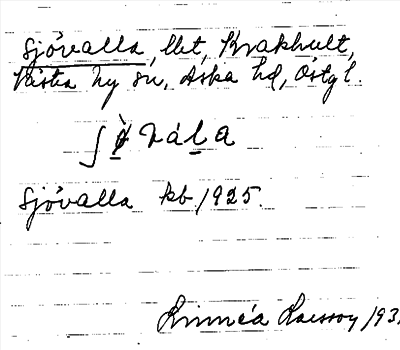 Sjövalla, lht, Krakhult,
Västra Ny sn, Aska hd, Östgl.
Sjövalla kb 1925.
Linnéa Larsson 193